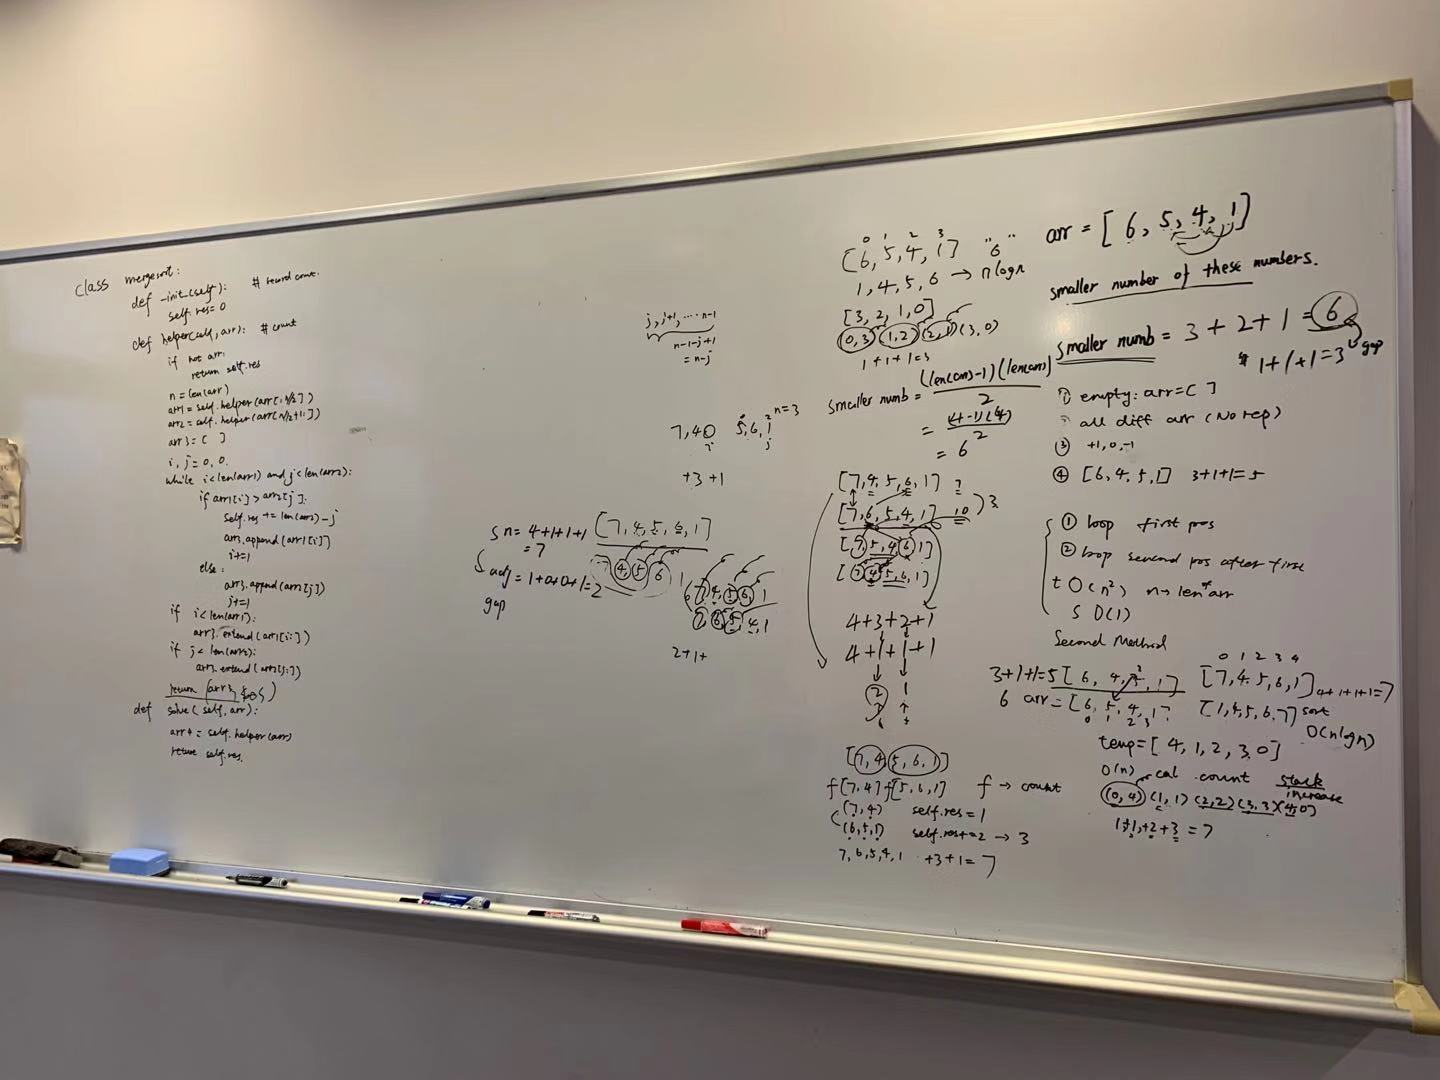 class mergesort:
def _init_(self): # record count.
self.res=0
def helper(self, arr): # count
if not arr:
return self.res
n = len(arr)
arr1 = self.helper(arr[:n/2])
arr2 = self.helper(arr[n/2+1:])
arr3 = [ ]
i, j = 0, 0.
while i<len(arr1) and j<len(arr2):
if arr1[i] > arr2[j]:
self.res += len(arr2)-j
arr3.append(arr1[i])
i+=1
else:
arr3.append(arr2[j])
j+=1
if i<len(arr1):
arr3.extend(arr1[i:])
if j<len(arr2):
arr3.extend(arr2[j:])
return (arr3,
def solve(self, arr):
arr4 = self.helper(arr)
return self.res.
j, j+1, .... n-1
n-1-j+1
= n-j
n=3
7,4 5,6,1
i j
+3 +1
sn = 4+1+1+1 [7,4,5,6,1]
= 7
adj = 1+0+0+1=2 7 4 5 6 1
gap
7 4, 5 6, 1
7, 6, 5, 4, 1
2+1+
0 1 2 3
[6,5,4,1] "6"
1,4,5,6 → nlogn
[3,2,1,0]
(0,3) (1,2) (2,1) (3,0)
1+1+1=3
smaller numb = (len(arr)-1)(len(arr))
2
= (4-1)(4)
2
= 6
[7,4,5,6,1] 7
[7,6,5,4,1] 10 ) 3
[7,5,4,6,1]
[7,4,5,6,1]
4+3+2+1
4+1+1+1
2 1
[7,4,5,6,1]
f[7,4] f[5,6,1] f → count
(7,4) self.res=1
(6,5,1) self.res+=2 → 3
7,6,5,4,1 +3+1=7
arr = [6,5,4,1]
smaller number of these numbers.
smaller numb = 3+2+1=6
1+1+1=3 gap
① empty: arr=[ ]
all diff arr (No rep)
③ +1,0,-1
④ [6,4,5,1] 3+1+1=5
① loop first pos
② loop second pos after first
t O(n²) n→len of arr
S O(1)
Second Method
3+1+1=5 [6, 4, 5, 1]
6 arr=[6, 5, 4, 1]
0 1 2 3
0 1 2 3 4
[7,4,5,6,1] 4+1+1+1=7
[1,4,5,6,7] sort
O(nlogn)
temp=[4,1,2,3,0]
O(n) cal count stack
increase
(0,4) (1,1) (2,2) (3,3) (4,0)
1+1+2+3=7